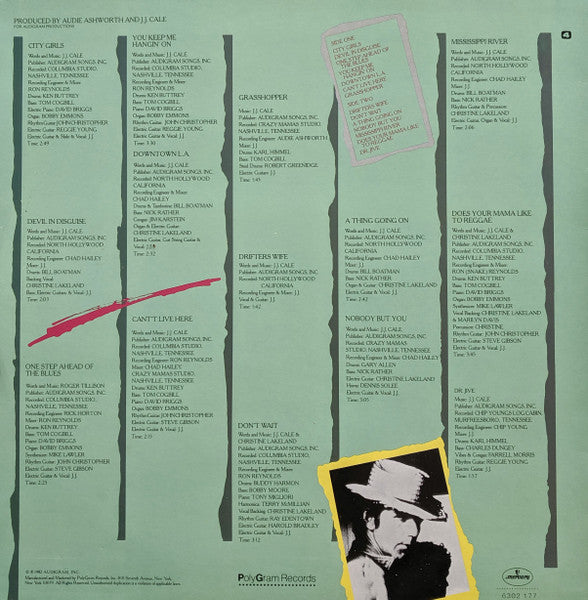 PRODUCED BY AUDIE ASHWORTH AND J.J. CALE
FOR AUDIGRAM PRODUCTIONS
CITY GIRLS
Words and Music: J.J. CALE
Publisher: AUDIGRAM SONGS, INC.
Recorded: COLUMBIA STUDIO,
NASHVILLE, TENNESSEE
Recording Engineer & Mixer:
RON REYNOLDS
Drums: KEN BUTTREY
Bass: TOM COGBILL
Piano: DAVID BRIGGS
Organ: BOBBY EMMONS
Rhythm Guitar: JOHN CHRISTOPHER
Electric Guitar: REGGIE YOUNG
Electric Guitar & Slide & Vocal: J.J.
Time: 2:49
DEVIL IN DISGUISE
Words and Music: J.J. CALE
Publisher: AUDIGRAM SONGS, INC.
Recorded: NORTH HOLLYWOOD,
CALIFORNIA
Recording Engineer: CHAD HAILEY
Mixer: J.J.
Drums: BILL BOATMAN
Backing Vocal:
CHRISTINE LAKELAND
Bass, Electric Guitars & Vocal: J.J.
Time: 2:03
ONE STEP AHEAD OF
THE BLUES
Words and Music: ROGER TILLISON
Publisher: AUDIGRAM SONGS, INC.
Recorded: COLUMBIA STUDIO,
NASHVILLE, TENNESSEE
Recording Engineer: RICK HORTON
Mixer: RON REYNOLDS
Drums: KEN BUTTREY
Bass: TOM COGBILL
Piano: DAVID BRIGGS
Organ: BOBBY EMMONS
Synthesizer: MIKE LAWLER
Rhythm Guitar: JOHN CHRISTOPHER
Electric Guitar: STEVE GIBSON
Electric Guitar & Vocal: J.J.
Time: 2:23
YOU KEEP ME
HANGIN' ON
Words and Music: J.J. CALE
Publisher: AUDIGRAM SONGS, INC.
Recorded: COLUMBIA STUDIO,
NASHVILLE, TENNESSEE
Recording Engineer & Mixer:
RON REYNOLDS
Drums: KEN BUTTREY
Bass: TOM COGBILL
Piano: DAVID BRIGGS
Organ: BOBBY EMMONS
Rhythm Guitar: JOHN CHRISTOPHER
Electric Guitar: REGGIE YOUNG
Electric Guitar & Vocal: J.J.
Time: 3:30
DOWNTOWN L.A.
Words and Music: J.J. CALE
Publisher: AUDIGRAM SONGS, INC.
Recorded: NORTH HOLLYWOOD
CALIFORNIA
Recording Engineer & Mixer:
CHAD HAILEY
Drums & Tambourine: BILL BOATMAN
Bass: NICK RATHER
Conga: JIM KARSTEIN
Organ & Electric Guitar:
CHRISTINE LAKELAND
Electric Guitar, Gut String Guitar &
Vocal: J.J.
Time: 2:32
CAN'T LIVE HERE
Words and Music: J.J. CALE
Publisher: AUDIGRAM SONGS, INC.
Recorded: COLUMBIA STUDIO,
NASHVILLE, TENNESSEE
Recording Engineer: RON REYNOLDS
Mixer: CHAD HAILEY
CRAZY MAMAS STUDIO,
NASHVILLE, TENNESSEE
Drums: KEN BUTTREY
Bass: TOM COGBILL
Piano: DAVID BRIGGS
Organ: BOBBY EMMONS
Rhythm Guitar: JOHN CHRISTOPHER
Electric Guitar: STEVE GIBSON
Electric Guitar & Vocal: J.J.
Time: 2:19
GRASSHOPPER
Music: J.J. CALE
Publisher: AUDIGRAM SONGS, INC.
Recorded: CRAZY MAMAS STUDIO,
NASHVILLE, TENNESSEE
Recording Engineer: AUDIE ASHWORTH
Mixer: J.J.
Drums: KARL HIMMEL
Bass: TOM COGBILL
Steel Drums: ROBERT GREENIDGE
Electric Guitars: J.J.
Time: 1:45
DRIFTERS WIFE
Words and Music: J.J. CALE
Publisher: AUDIGRAM SONGS, INC.
Recorded: NORTH HOLLYWOOD
CALIFORNIA
Recording Engineer & Mixer: J.J.
Vocal & Guitar: J.J.
Time: 1:42
DON'T WAIT
Words and Music: J.J. CALE &
CHRISTINE LAKELAND
Publisher: AUDIGRAM SONGS, INC.
Recorded: COLUMBIA STUDIO,
NASHVILLE, TENNESSEE
Recording Engineer & Mixer:
RON REYNOLDS
Drums: BUDDY HARMON
Bass: BOBBY MOORE
Piano: TONY MIGLIORI
Harmonica: TERRY McMILLIAN
Vocal Backing: CHRISTINE LAKELAND
Rhythm Guitar: RAY EDENTOWN
Electric Guitar: HAROLD BRADLEY
Electric Guitar & Vocal: J.J.
Time: 3:12
SIDE ONE
CITY GIRLS
DEVIL IN DISGUISE
ONE STEP AHEAD OF
THE BLUES
YOU KEEP ME
HANGIN' ON
DOWNTOWN L.A.
CAN'T LIVE HERE
GRASSHOPPER
SIDE TWO
DRIFTERS WIFE
DON'T WAIT
A THING GOING ON
NOBODY BUT YOU
MISSISSIPPI RIVER
DOES YOUR MAMA LIKE
TO REGGAE
DR. JIVE
A THING GOING ON
Words and Music: J.J. CALE
Publisher: AUDIGRAM SONGS, INC.
Recorded: NORTH HOLLYWOOD
CALIFORNIA
Recording Engineer: CHAD HAILEY
Mixer: J.J.
Drums: BILL BOATMAN
Bass: NICK RATHER
Organ & Guitar: CHRISTINE LAKELAND
Electric Guitar & Vocal: J.J.
Time: 2:42
NOBODY BUT YOU
Words and Music: J.J. CALE
Publisher: AUDIGRAM SONGS, INC.
Recorded: CRAZY MAMAS
STUDIO, NASHVILLE, TENNESSEE
Recording Engineer & Mixer: CHAD HAILEY
Drums: GARY ALLEN
Bass: NICK RATHER
Electric Guitar: CHRISTINE LAKELAND
Horns: DENNIS SOLEE
Electric Guitar & Vocal: J.J.
Time: 3:05
MISSISSIPPI RIVER
Words and Music: J.J. CALE
Publisher: AUDIGRAM SONGS, INC.
Recorded: NORTH HOLLYWOOD
CALIFORNIA
Recording Engineer: CHAD HAILEY
Mixer: J.J.
Drums: BILL BOATMAN
Bass: NICK RATHER
Rhythm Guitar & Percussion:
CHRISTINE LAKELAND
Electric Guitar, Organ & Vocal: J.J.
Time: 2:06
DOES YOUR MAMA LIKE
TO REGGAE
Words and Music: J.J. CALE &
CHRISTINE LAKELAND
Publisher: AUDIGRAM SONGS, INC.
Recorded: COLUMBIA STUDIO,
NASHVILLE, TENNESSEE
Recording Engineer & Mixer:
RON (SNAKE) REYNOLDS
Drums: KEN BUTTREY
Bass: TOM COGBILL
Piano: DAVID BRIGGS
Organ: BOBBY EMMONS
Synthesizer: MIKE LAWLER
Vocal Backing: CHRISTINE LAKELAND
& MARILYN DAVIS
Percussion: CHRISTINE
Rhythm Guitar: JOHN CHRISTOPHER
Electric Guitar: STEVE GIBSON
Electric Guitar & Vocal: J.J.
Time: 3:45
DR. JIVE
Words and Music: J.J. CALE
Publisher: AUDIGRAM SONGS, INC.
Recorded: CHIP YOUNGS LOG CABIN,
MURFREESBORO, TENNESSEE
Recording Engineer: CHIP YOUNG
Mixer: J.J.
Drums: KARL HIMMEL
Bass: CHARLES DUNGEY
Vibes & Congas: FARRELL MORRIS
Rhythm Guitar: REGGIE YOUNG
Electric Guitar: J.J.
Time: 1:57
4
℗ © 1982 AUDIGRAM, INC.
Manufactured and Marketed by PolyGram Records, Inc. 810 Seventh Avenue, New York,
New York 10019. All Rights Reserved. Unauthorized duplication is a violation of applicable laws.
PolyGram Records
mercury
6302 177